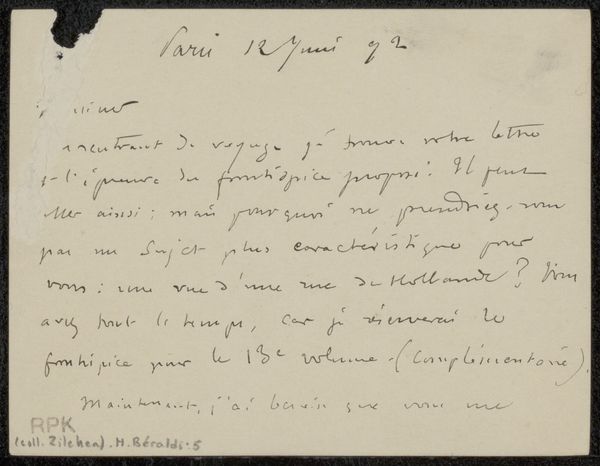 Paris 12 Juin 92
rentrant de voyage j'ai trouvé votre lettre
et l'épreuve du frontispice proposé. Il peut
aller ainsi ; mais pourquoi ne prendriez-vous
pas un sujet plus caractéristique pour
vous : une vue d'une rue de Hollande ? Vous
avez tout le temps, car je réserverai le
frontispice pour le 13e volume. (complémentaire).
Maintenant, j'ai besoin que vous me
RPK
(coll. Zilcken). H. Béraldi. 5